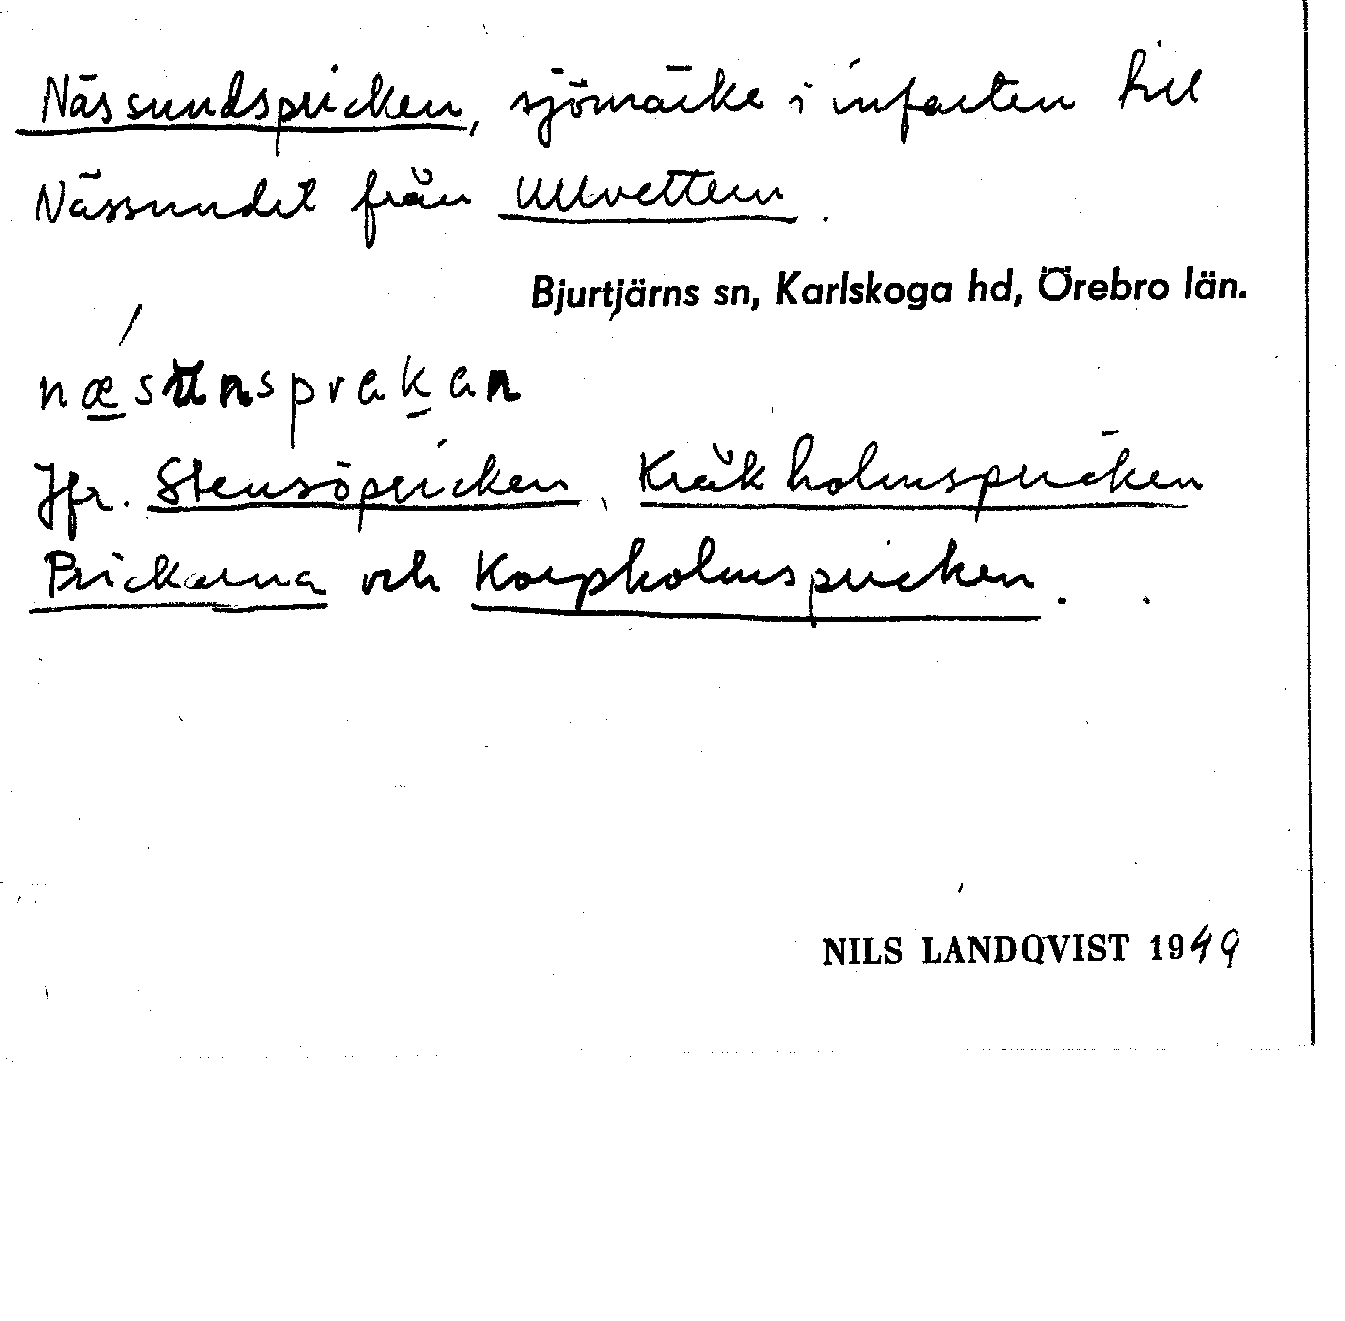 Nässundspricken, sjömärke i infarten till
Nässundet från Ullvettern.
Bjurtjärns sn, Karlskoga hd, Örebro län.
næsunsprakan
Jfr. Stensöpricken, Kråkholmspricken
Prickarna och Korpholmspricken.
NILS LANDQVIST 1949